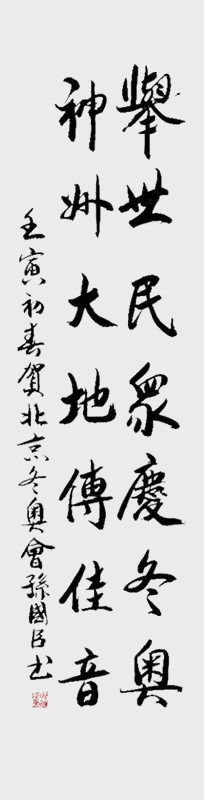 舉世民眾慶冬奧
神州大地傳佳音
壬寅初春賀北京冬奧會孫國臣书